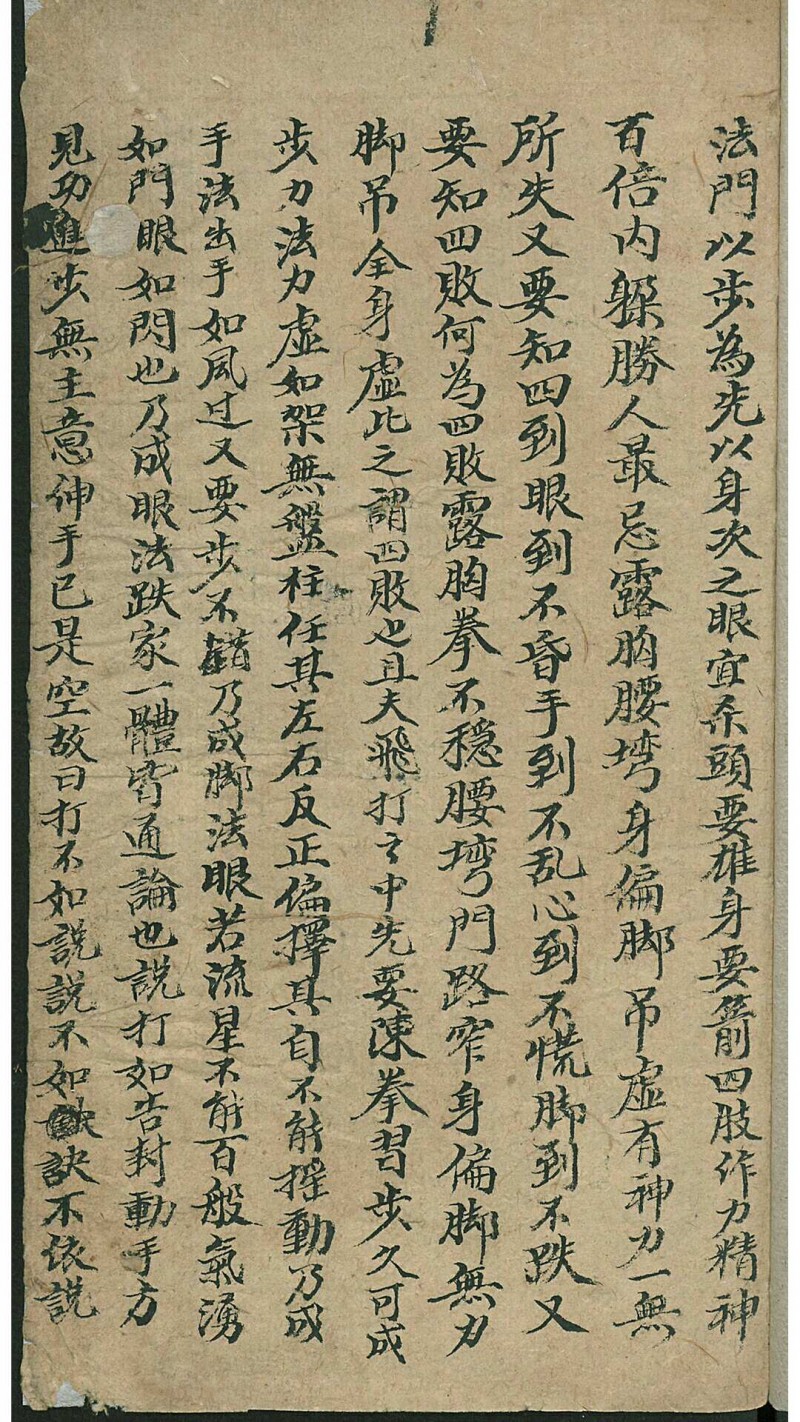 法門以步為先以身次之眼宜杀頭要雄身要箭四肢作力精神
百倍内躲勝人最忌露胸腰塆身偏脚吊虚有神力一無
所失又要知四到眼到不昏手到不乱心到不慌脚到不跌又
要知四敗何為四敗露胸拳不穩腰塆門路窄身偏脚無力
脚吊全身虚此之謂四敗也且夫飛打之中先要陳拳習步久可成
步力法力虚如架無盤柱任其左右反正偏擇其自不能摇動乃成
手法出手如風过又要步不錯乃成脚法眼若流星不能百般氣湧
如門眼如閃也乃成眼法跌家一體皆通論也説打如告封動手方
見功進步無主意伸手已是空故曰打不如説説不如訣不依説